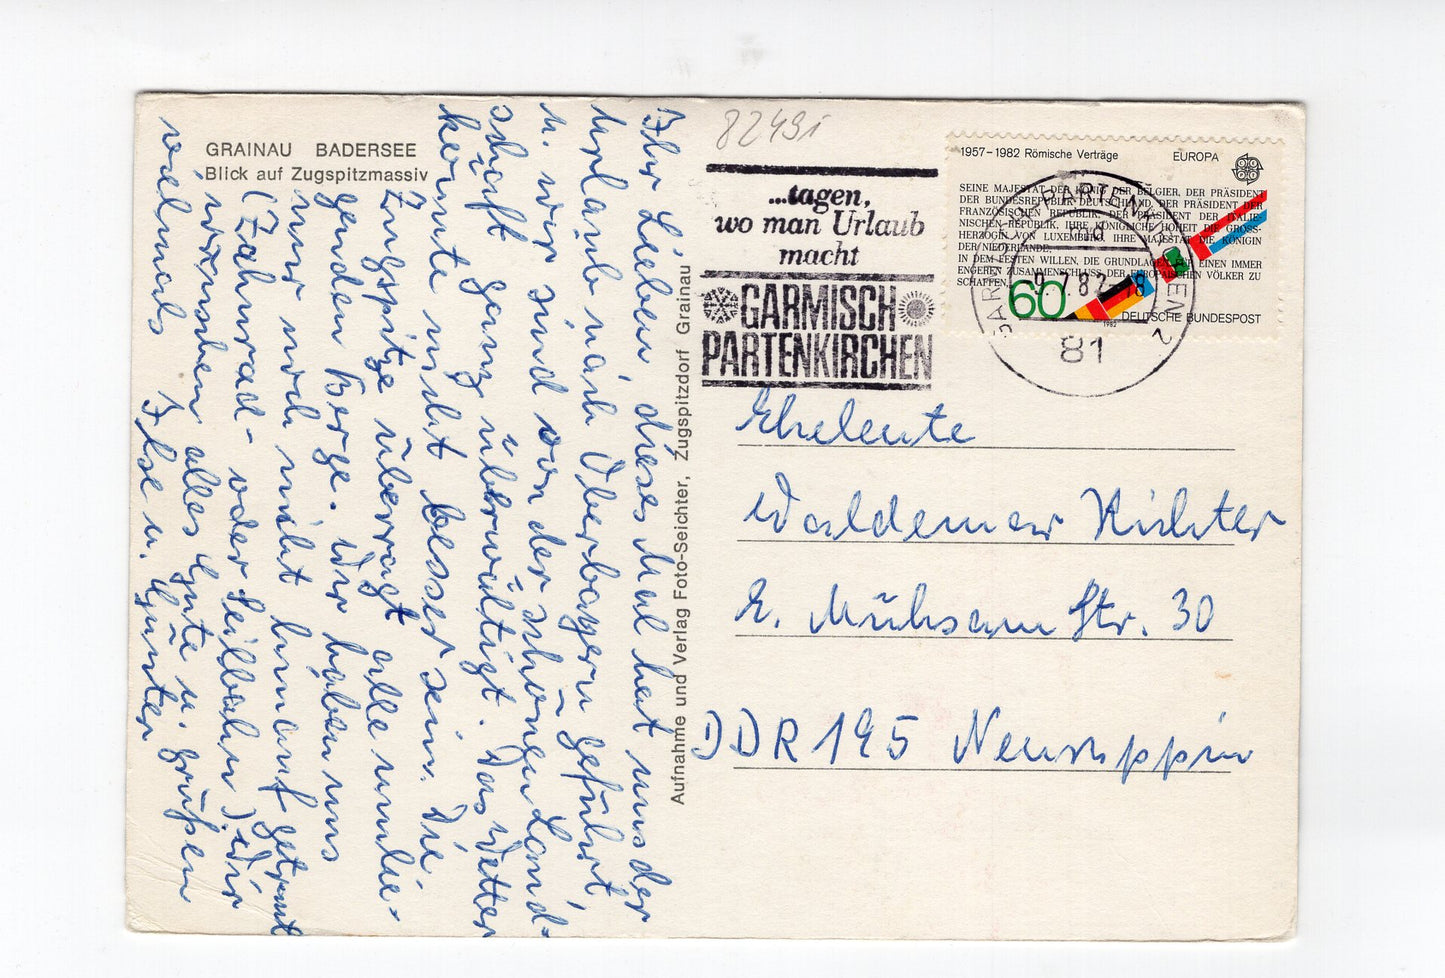 GRAINAU BADERSEE
Blick auf Zugspitzmassiv
Ihr Lieben, dieses Mal hat uns der
Urlaub nach Oberbayern geführt,
u. wir sind von der schönen Land-
schaft ganz überwältigt. Das Wetter
könnte nicht besser sein. Die
Zugspitze überragt alle umlie-
genden Berge. Wir haben uns
nur noch nicht hinauf getraut
(Zahnrad- oder Seilbahn). Wir
wünschen alles Gute u. grüßen
vielmals Ilse u. Günter
Aufnahme und Verlag Foto-Seichter, Zugspitzdorf Grainau
8249i
...tagen,
wo man Urlaub
macht
GARMISCH
PARTENKIRCHEN
1957–1982 Römische Verträge EUROPA
SEINE MAJESTÄT DER KÖNIG DER BELGIER, DER PRÄSIDENT
DER BUNDESREPUBLIK DEUTSCHLAND, DER PRÄSIDENT DER
FRANZÖSISCHEN REPUBLIK, DER PRÄSIDENT DER ITALIE-
NISCHEN REPUBLIK, IHRE KÖNIGLICHE HOHEIT DIE GROSS-
HERZOGIN VON LUXEMBURG, IHRE MAJESTÄT DIE KÖNIGIN
DER NIEDERLANDE
IN DEM FESTEN WILLEN, DIE GRUNDLAGEN FÜR EINEN IMMER
ENGEREN ZUSAMMENSCHLUSS DER EUROPÄISCHEN VÖLKER ZU
SCHAFFEN,
60
DEUTSCHE BUNDESPOST
1982
GARMISCH-PARTENKIRCHEN 2
md
-9.7.82-18
81
Eheleute
Waldemar Richter
E. Mühsam Str. 30
DDR 195 Neuruppin